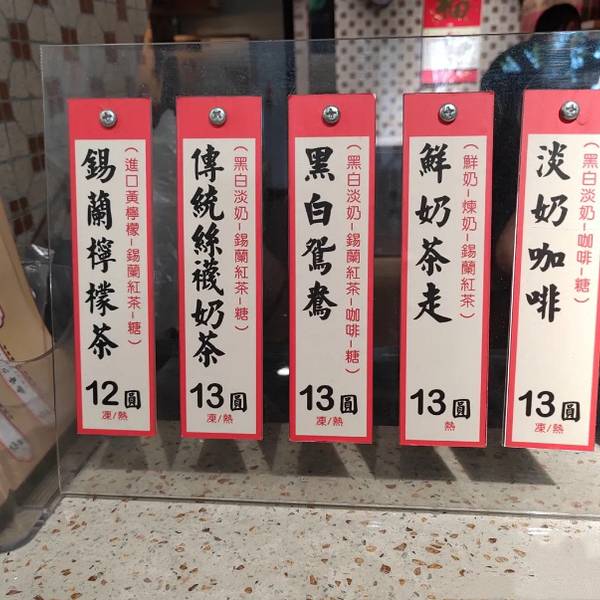 錫蘭檸檬茶
（進口黃檸檬-錫蘭紅茶-糖）
12圓
凍/熱
傳統絲襪奶茶
（黑白淡奶-錫蘭紅茶-糖）
13圓
凍/熱
黑白鴛鴦
（黑白淡奶-錫蘭紅茶-咖啡-糖）
13圓
凍/熱
鮮奶茶走
（鮮奶-煉奶-錫蘭紅茶）
13圓
熱
淡奶咖啡
（黑白淡奶-咖啡-糖）
13圓
凍/熱